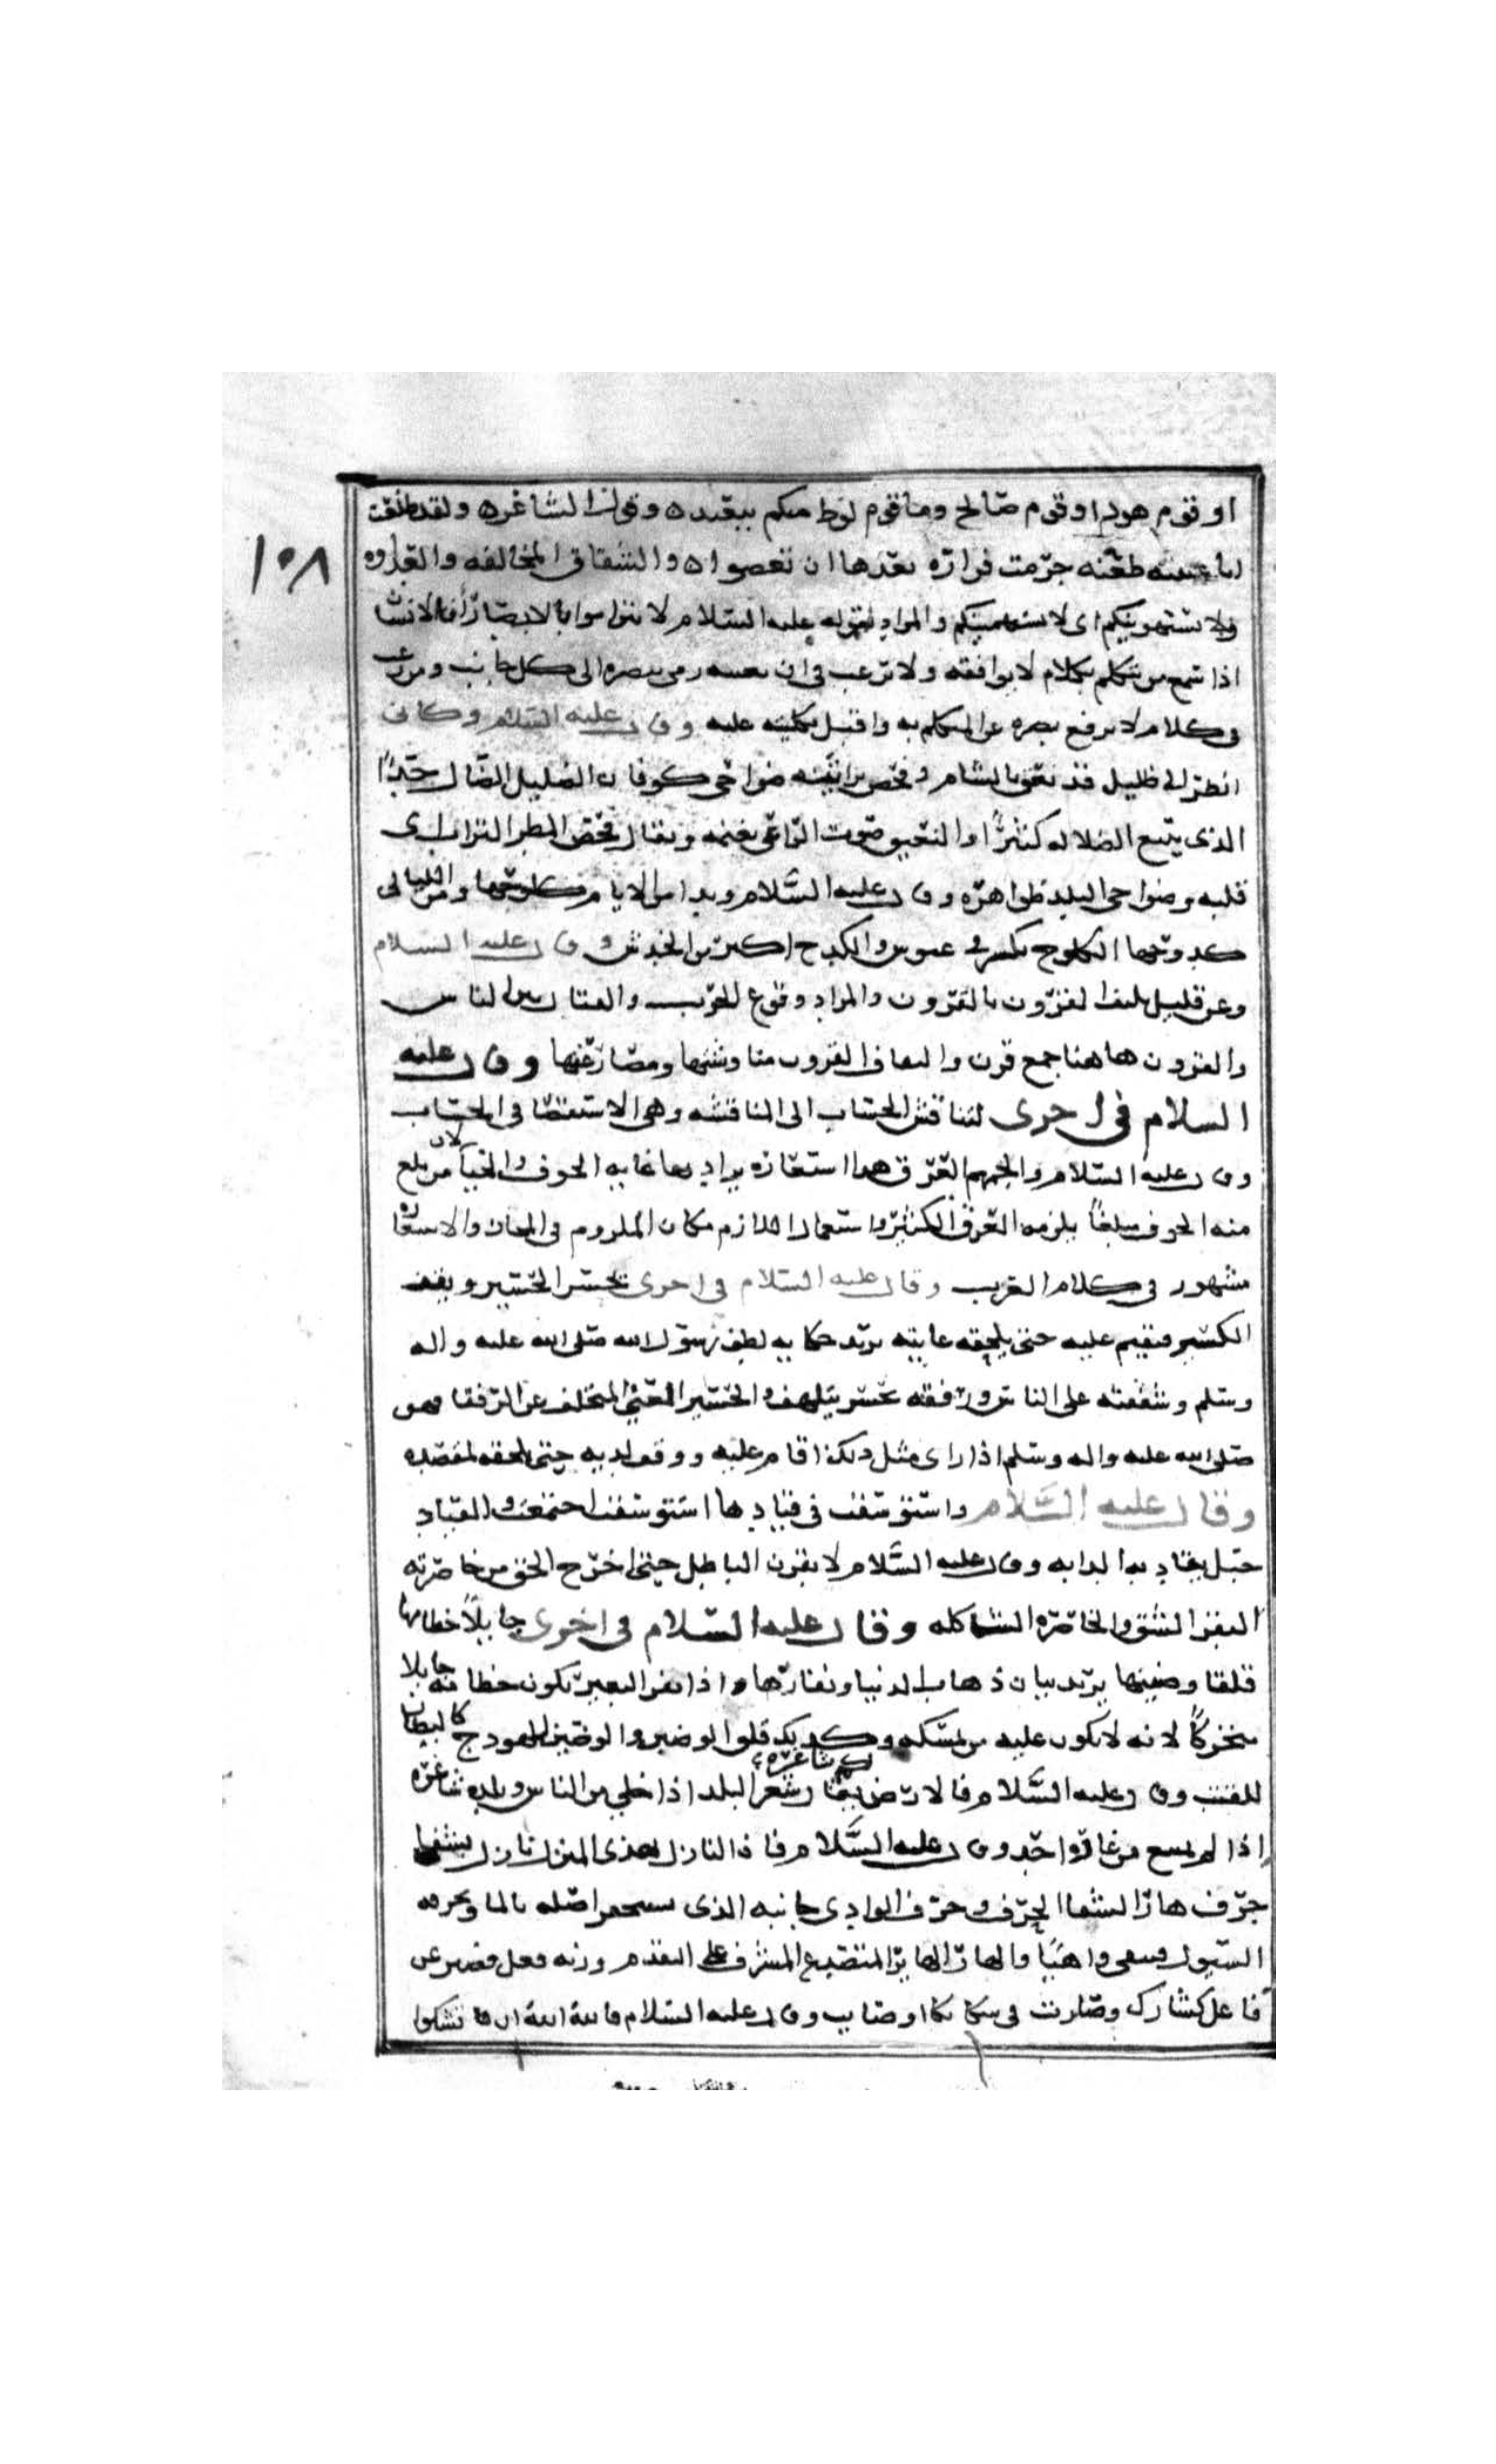 او قوم هود او قوم صالح وما قوم لوط منكم ببعيد ه وقول الشاعر ه ولقد طعنت
ابا عيينه طعنة جرمت فزاره بعدها ان تغصبوا ه والشقاق المخالفه والعداوه
١٠٨
ولا يستهوينكم اى لا يستهيمنكم والمراد بقوله عليه السلام لا تتراموا بالابصار أن الانسان
اذا سمع من يتكلم بكلام لا يوافقه ولا يرغب فى ان يسمعه رمى ببصره الى كل جانب ومن رغب
فى كلام لا يرفع بصره عن المتكلم به واقبل بكليته عليه وقال عليه السلام وكانى
انظر الى ضليل قد نعق بالشام وفحص براياته ضواحى كوفان الضليل الضال جدًا
الذى يتبع الضلاله كثيرًا والنعيق صوت الراعى بغنمه ويقال فحص المطر التراب اى
قلبه وضواحى البلد ظواهره وقال عليه السلام وبدا من الايام كلوحها ومن الليالى
كدوحها الكلوح تكشر فى عبوس والكدح اكثر من الخدش وقال عليه السلام
وعن قليل تلتف القرون بالقرون والمراد وقوع الحرب والقتال بين الناس
والقرون هاهنا جمع قرن والتفاف القرون مناوشتها ومصارعتها وقال عليه
السلام فى اخرى لنناقش الحساب الى المناقشه وهى الاستقصا فى الحساب
وقال عليه السلام والجمهم العرق هذا استعاره يراد بها غايه الخوف والحيا لان من بلغ
منه الخوف مبلغًا يلزمه العرق الكثير واستعمال اللازم مكان الملزوم فى المجاز والاستعاره
مشهور فى كلام العرب وقال عليه السلام فى اخرى يحسر الحسير ويقف
الكسير فيقيم عليه حتى يلحقه غايته يريد حكايه لطف رسول الله صلى الله عليه واله
وسلم وشفقته على الناس ورفقه يحسر يتلهف والحسير المعيى المتخلف عن الرفقا فهو
صلى الله عليه واله وسلم اذا راى مثل ذلك اقام عليه ووقف لديه حتى يلحقه لمقصده
وقال عليه السلام واستوسقت فى قيادها استوسقت اجتمعت والقياد
حبل يقاد به الدابه وقال عليه السلام لا بقرن الباطل حتى اخرج الحق من خاصرته
البقر الشق والخاصره الشاكله وقال عليه السلام فى اخرى جايلًا خطامها
قلقا وضينها يريد بيان ذهاب الدنيا ونفارتها واذا نفر البعير يكون خطامه جايلا
متحركًا لانه لا يكون عليه من يمسكه وكذلك قلق الوضين والوضين للهودج كالبطان
للقتب وقال عليه السلام فالارض لكم شاغره يقال شغر البلد اذا خلى من الناس وبلده شاغره
اذا لم يمنع من غارة احد وقال عليه السلام فان النازل بهذى المنزل نازل بشفا
جرف هار الشفا الجرف وجرف الوادى جانبه الذى يتحفر اصله بالما وتجرفه
السيول فيبقى واهيًا والهار الهاير المتصدع المشرف على التهدم وزنه فعل قصر عن
فاعل كشارك وصارت فى شكا شاكا وصايب وقال عليه السلام فالله الله ان تشكوا